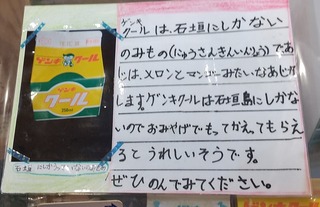 ゲンキ
クールは、石垣にしかない
のみもの(にゅうさんきんいんりょう)であ
じは、メロンとマンゴーみたいなあじが
します。ゲンキクールは石垣島にしかな
いのでおみやげでもってかえってもらえ
るとうれしいそうです。
ぜひのんでみてください。
ゲンキ
クール